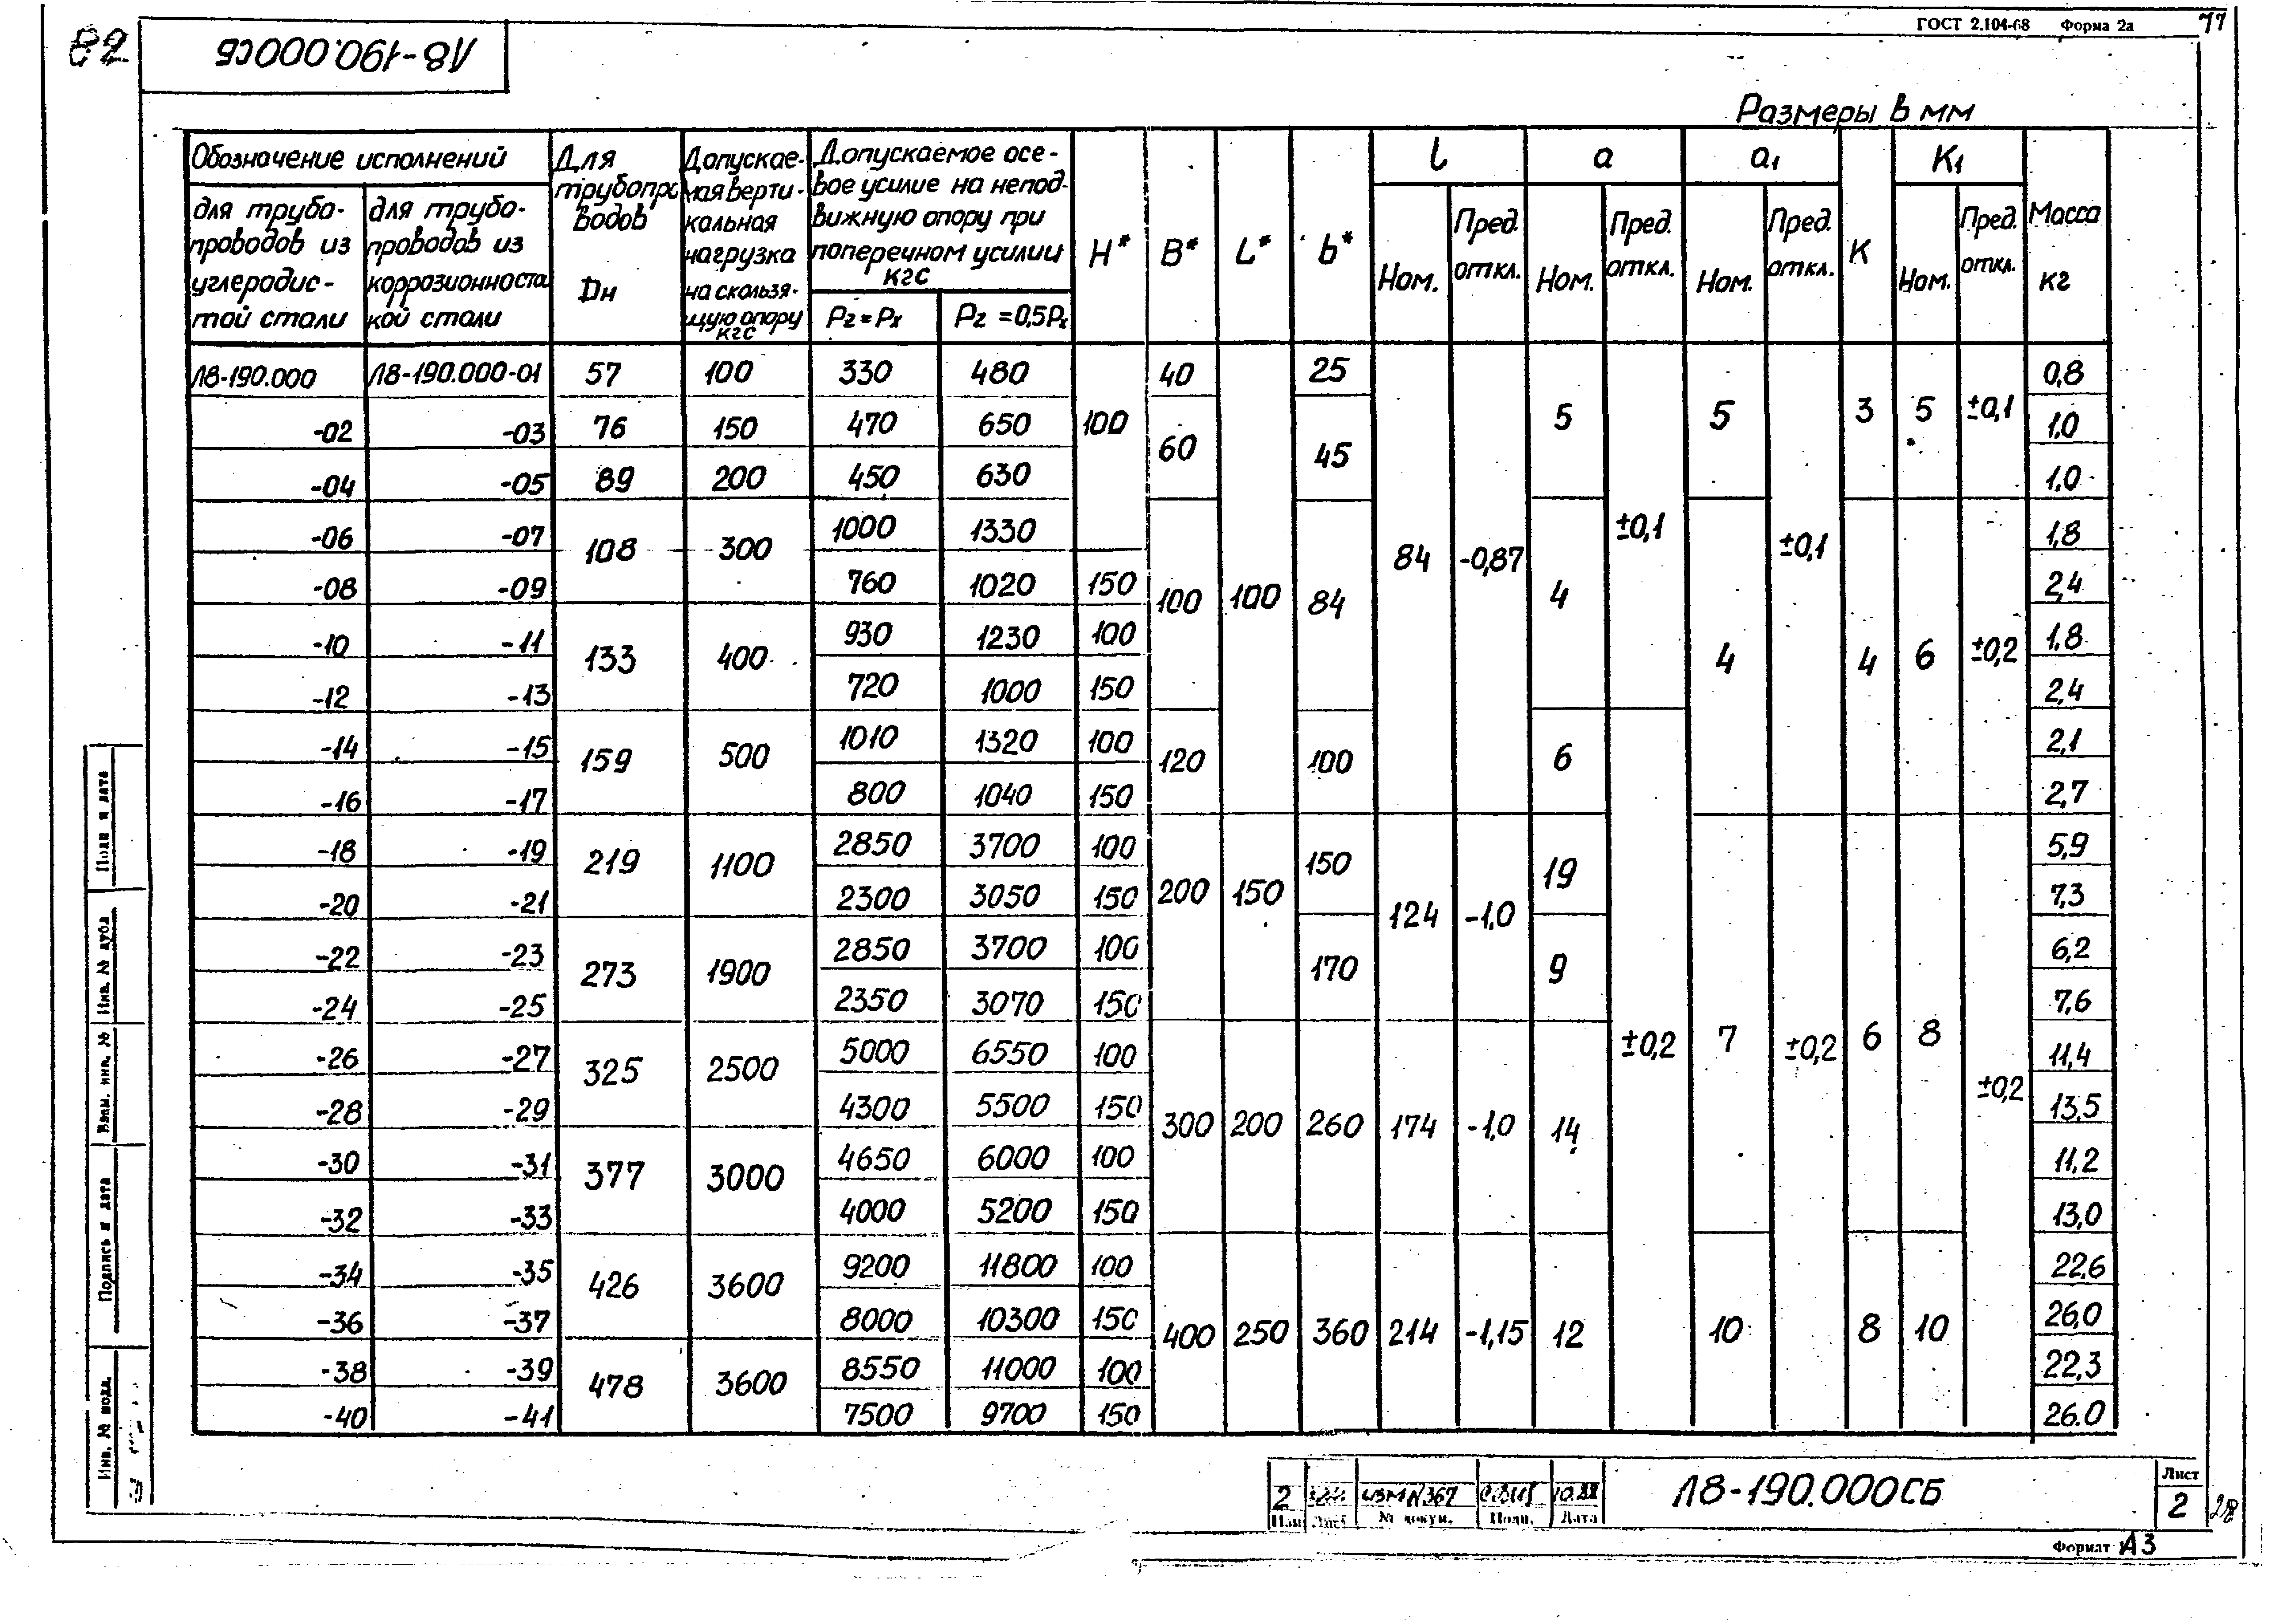 ГОСТ 2.104-68 Форма 2а
Л8-190.000СБ
Размеры в мм
Обозначение исполнений
для трубо-
проводов из
углеродис-
той стали
для трубо-
проводов из
коррозионноста
кой стали
Для
трубопро
водов
Dн
Допускае-
мая верти-
кальная
нагрузка
на скользя-
щую опору
кгс
Допускаемое осе-
вое усилие на непод-
вижную опору при
поперечном усилии
кгс
Pz=Px
Pz=0,5Px
H*
B*
L*
b*
l
Ном.
Пред.
откл.
a
Ном.
Пред.
откл.
a1
Ном.
Пред.
откл.
K
K1
Ном.
Пред.
откл.
Масса
кг
Л8-190.000 Л8-190.000-01 57 100 330 480 100 40 100 25 84 -0,87 5 ±0,1 5 ±0,1 3 5 ±0,1 0,8
-02 -03 76 150 470 650 60 45 1,0
-04 -05 89 200 450 630 1,0
-06 -07 108 300 1000 1330 100 84 4 4 4 6 ±0,2 1,8
-08 -09 760 1020 150 2,4
-10 -11 133 400 930 1230 100 1,8
-12 -13 720 1000 150 2,4
-14 -15 159 500 1010 1320 100 120 100 6 ±0,2 2,1
-16 -17 800 1040 150 2,7
-18 -19 219 1100 2850 3700 100 200 150 150 124 -1,0 19 7 ±0,2 6 8 ±0,2 5,9
-20 -21 2300 3050 150 7,3
-22 -23 273 1900 2850 3700 100 170 9 6,2
-24 -25 2350 3070 150 7,6
-26 -27 325 2500 5000 6550 100 300 200 260 174 -1,0 14 11,4
-28 -29 4300 5500 150 13,5
-30 -31 377 3000 4650 6000 100 11,2
-32 -33 4000 5200 150 13,0
-34 -35 426 3600 9200 11800 100 400 250 360 214 -1,15 12 10 8 10 22,6
-36 -37 8000 10300 150 26,0
-38 -39 478 3600 8550 11000 100 22,3
-40 -41 7500 9700 150 26.0
Подп и дата
Инв. № дубл
Взам. инв. №
Подпись и дата
Инв. № подл.
2 изм N367 10.88
Изм Лист № докум. Подп. Дата
Л8-190.000СБ
Лист
2
28
Формат А3